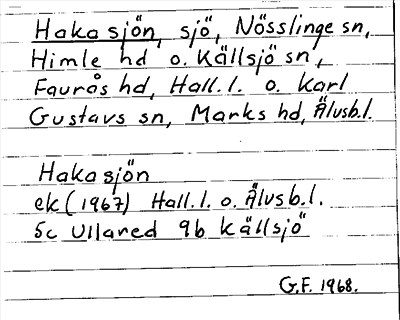 Hakasjön, sjö, Nösslinge sn,
Himle hd o. Källsjö sn,
Faurås hd, Hall.l. o. Karl
Gustavs sn, Marks hd, Älvsb.l.
Hakasjön
ek (1967) Hall.l. o. Älvsb.l.
5c Ullared 9b Källsjö
G.F. 1968.